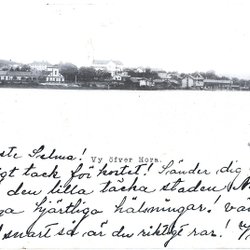 ste Selma!
Vy öfver Nora.
igt tack för kortet! Sänder dig
den lilla täcka staden N
ga hjärtliga hälsningar! va
snart så är du riktigt rar.